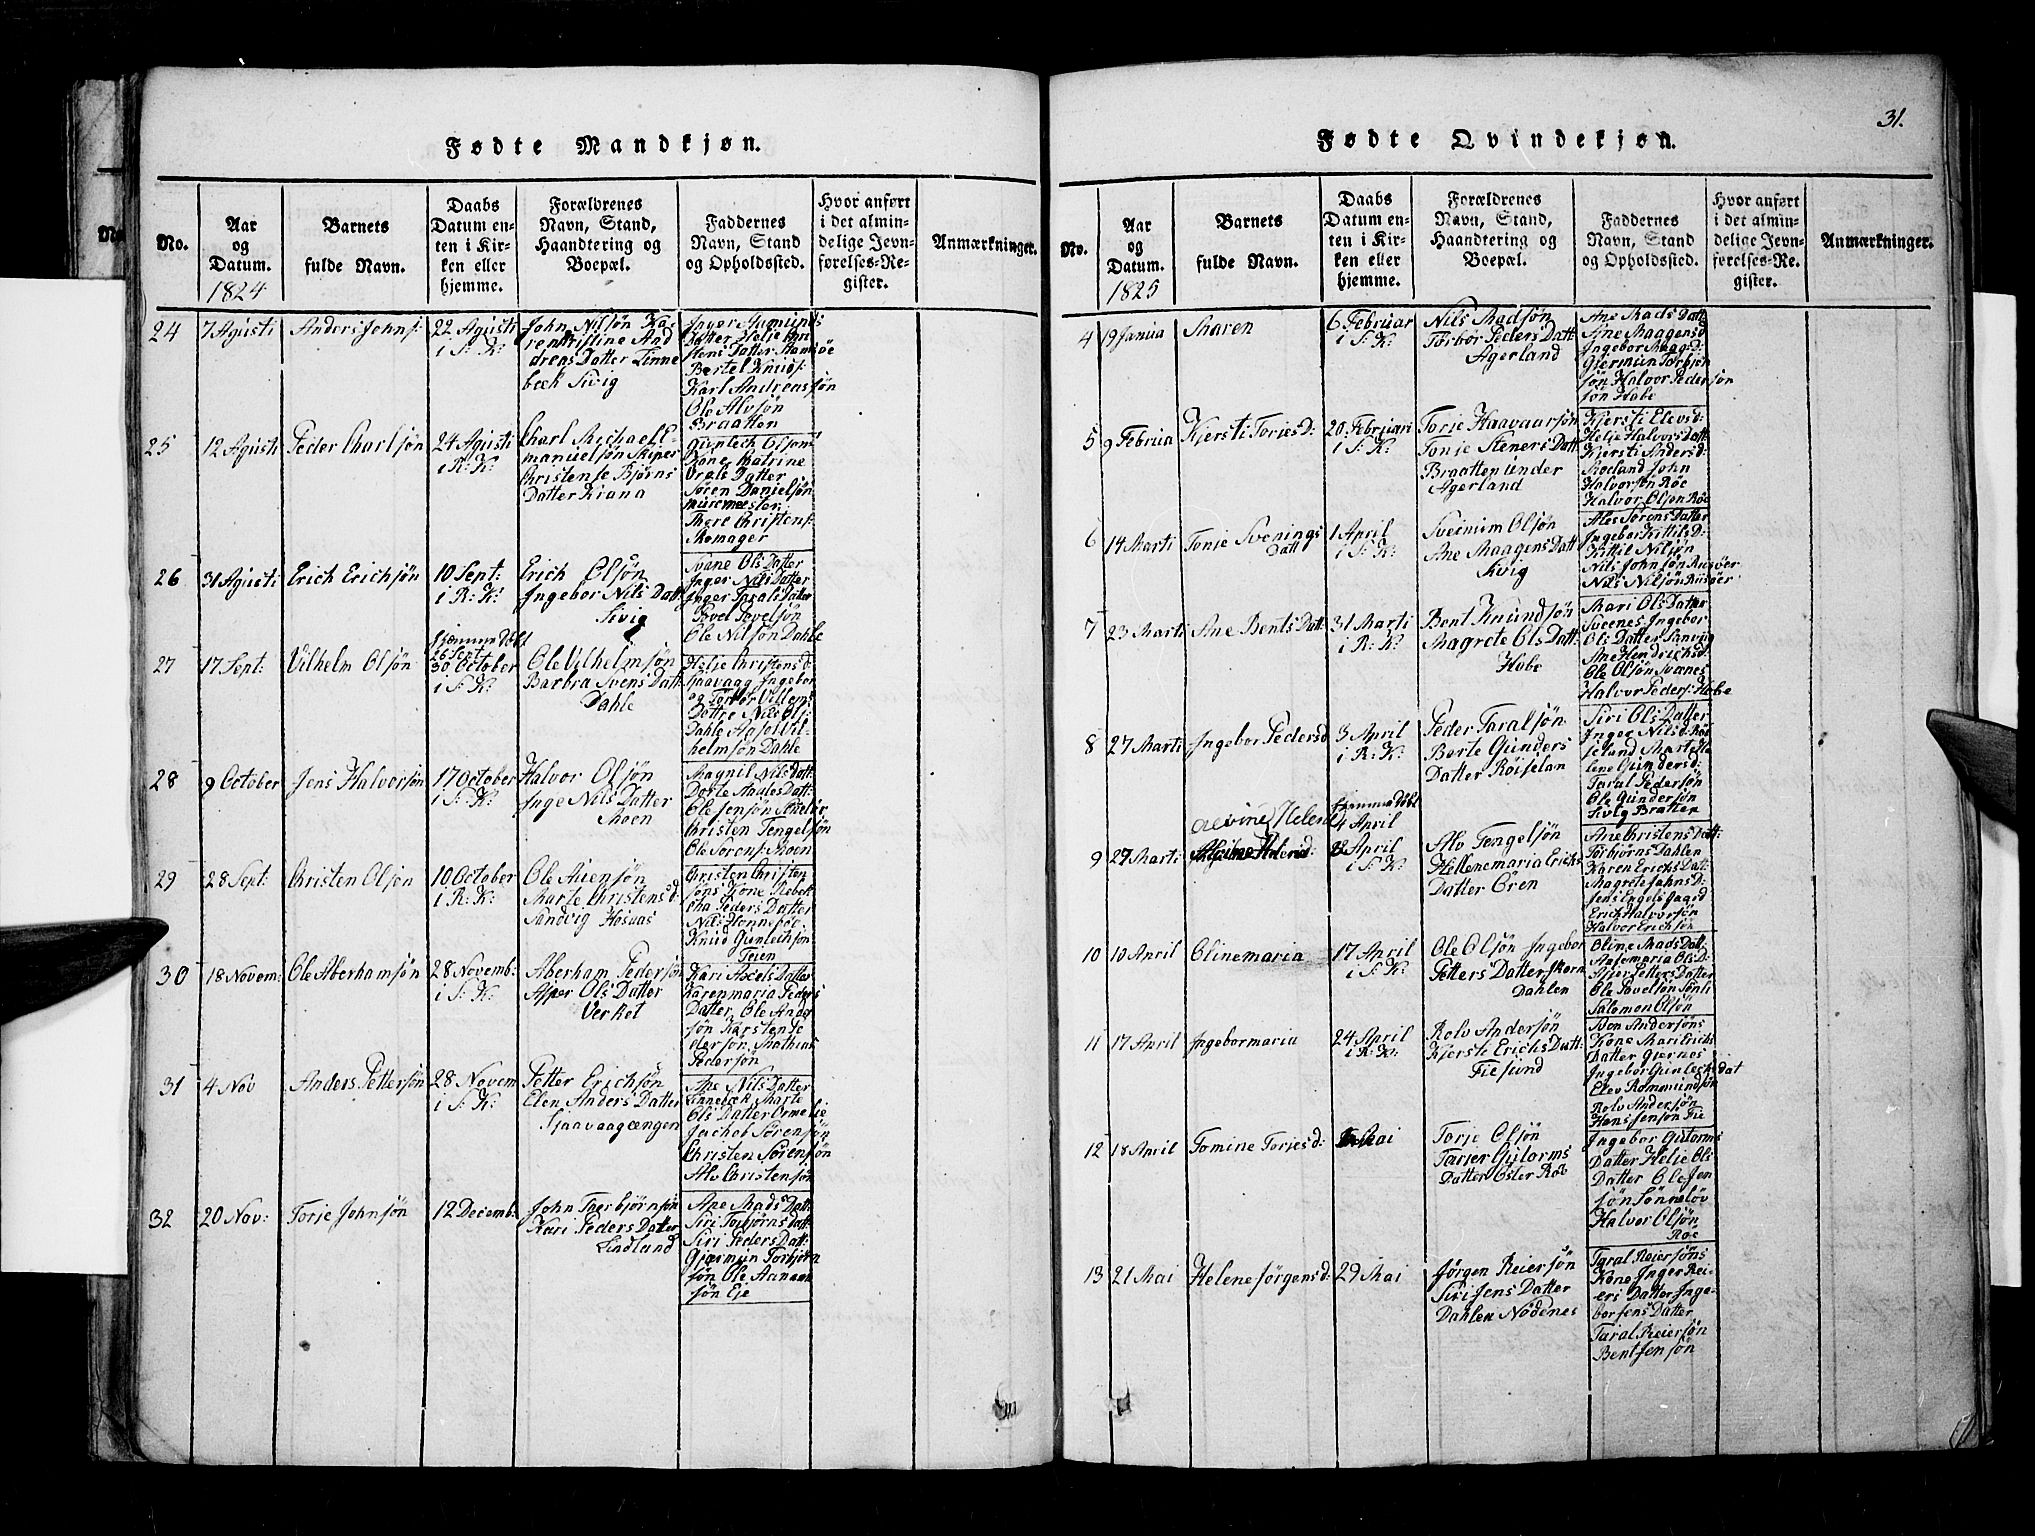 Fødte Mandkjøn.
No.
Aar
og
Datum.
1824
Barnets
fulde Navn.
Daabs
Datum en-
ten i Kir-
ken eller
hjemme.
Forælbrenes
Navn, Stand,
Haandtering og
Boepæl.
Faddernes
Navn, Stand
og Opholdssted.
Hvor anført
i det almin-
delige Jevn-
førelses-Re-
gister.
Anmærkninger.
24
7 Agusti
Anders Johns:
22 Agusti
i S: K:
John Nilsøn Ka-
ren Kristine And
dreas Datter Linne
bæk Sivig
Inger Amunds
Datter Helje Kri
stens Datter
Bertel Knuds:
Karl Andrenssøn
Ole Alvsøn
Braatten
25
12 Agusti
Peder Charlsøn
24 Agusti
i R: K:
Charl Michaell
manuelsøn Skiper
Christense Bjørns
Datter Krana
Gunlech Olsøns
Kone Chatrine
Datter
Søren Danielsøn
Muremester
Thore Christens:
Skomager
26
31 Agusti
Erich Erichsøn
10 Sept:
i R: K:
Erich Olsøn
Ingebor Nils Datt
Sivig
Svane Ols Datter
Inger Nils Datter
Inger Tarals Datter
Povel Povelsøn
Ole Nilsøn Dahle
27
17 Sept:
Vilhelm Olsøn
hjemme Døbt
26 Sept
30 October
i S: K:
Ole Vilhelmsøn
Barbra Svens Datt:
Dahle
Helje Christens d:
Sjaavaag Ingebor
og Torbor Villems
Dattre Nils Ols:
Dahle Vil-
helmsøn Dahle
28
9 October
Jens Halvorsøn
17 October
i S: K:
Halvor Olsøn
Inge Nils Datter
Moen
Magnil Nils datt:
Dorte Datt:
Ole Jensøn
Christen Tengelsøn
Ole Sørens: Moen
29
28 Sept:
Christen Olsøn
10 October
i R: K:
Ole Auensøn
Marte Christens d:
Sandvig Hosaas
Christen Christen
søns Kone Rebek
cha Peders Datter
Nils Honnebøe
Knud Gunlechsøn
Feien
30
18 Novem:
Ole Aberhamsøn
28 Novemb:
i S: K:
Aberham Pedersøn
Asper Ols Datter
Verket
Kari Axels Datter
Karenmaria Peders
Datter, Ole And
søn Karsten Pe
dersøn, Mathias
Pedersøn
31
4 Nov
Anders Pettersøn
28 Novem
i S: K:
Petter Erichsøn
Elen Anders Datter
Sjaavaagængen
Ane Nils Datter
Linnebæk Marte
Ols Datter
Jachob Sørensøn
Christen Sørensøn
Alv Christensøn
32
20 Nov:
Torje Johnsøn
12 Decemb:
John Therbjørnsøn
Kari Peders Datter
Lindland
Ane Mads Datt:
Siri Torbjørns datt:
Siri Peders Datt:
Gjermun Torbjørn
søn Ole Aanon
søn Eie
31.
Fødte Qvindekjøn.
No.
Aar
og
Datum.
1825
Barnets
fulde Navn.
Daabs
Datum en-
ten i Kir-
ken eller
hjemme.
Forældrenes
Navn, Stand,
Haandtering og
Boepæl.
Faddernes
Navn, Stand
og Opholdssted.
Hvor anført
i det almin-
delige Jevn-
førelses-Re-
gister.
Anmærkninger.
4
19 Janua
Maren
6 Februar
i S: K:
Nils Madsøn
Torbor Peders Datt:
Agerland
Ane Mads Datt:
Aine Maagensd
Ingebor Maagsd:
Gjermun Torbjen
søn Halvor Pedersøn
søn Hobe
5
9 Februa
Kjersti Torjes d:
20 Februari
i S: K:
Torje Haavaarsøn
Tonje Steners Datt
Braatten under
Agerland
Kjersti Elevsd:
Helje Halvors Datt:
Kjersti Andersd:
Roeland John
Halvorsøn Røe
Halvor Olsøn Røe
6
14 Marti
Tonje Svenings
Datt
1 April
i S: K:
Sveinum Olsøn
Ane Maagens Datt
Sivig
Ales Sørens Datter
Ingebor Kittilsd:
Kittil Nilsøn
Nils Johnsøn Rusøer
Nils Nilsøn Rusøer
7
23 Marti
Ane Bents Datt:
31 Marti
i R: K:
Bent Knundsøn
Magrete Ols Datt:
Hobe
Mari Ols Datter
Svenes Ingebor
Ols Datter Sanvig
Ane Hendrichsd:
Ole Olsøn Svanes
Halvor Peders: Hobe
8
27 Marti
Ingebor Pedersd
3 April
i R: K:
Peder Taralsøn
Berte Gunders
Datter Røiselan
Siri Ols Datter
Inger Nils d: Røi
seland Marte He
lene Gundersd:
Taral Pedersøn
Ole Gundersøn
Sivig Bratten
9
27 Marti
Alvine Helene
hjemme Døbt
4 April
8 April
i S: K:
Alv Tengelsøn
Hellenemaria Erichs
Datter Ören
Ane Kristens Datt:
Torbjørns Dahlen
Karen Erichs Datt:
Magrete Johns D:
Jens Engels
Erich Halvorsøn
Halvor Erichsøn
10
10 April
Olinemaria
17 April
i S: K:
Ole Olsøn Ingebor
Petters Datter Skorn
Dahlen
Oline Mads Datt:
Ols D:
Asjer Petters Datter
Ole Povelsøn
Salomon Olsøn
11
17 April
Ingebormaria
24 April
i R: K:
Rolv Andersøn
Kjersti Erichs Datt:
Fiesund
Andersøns
Kone Mari Erichs
Datter Gjernes
Ingebor Gunlechsdat
Elev Rommundsøn
Rolv Andersøn
Hans Jensøn Fie
12
18 April
Tomine Torjes d:
Mai
Torje Olsøn
Tarjer Gutorms
Datter Øster Røe
Ingebor Gutorms
Datter Helje Ols
Datter Ole Jen
søn Lønneløv
Halvor Olsøn
Røe
13
21 Mai
Helene Jørgensd:
29 Mai
Jørgen Reiersøn
Siri Jens Datter
Dahlen Nødenes
Taral Reiersøns
Kone Inger Rei-
ers Datter Inge-
bor Jens Datter
Taral Reiersøn
Bent Jensøn